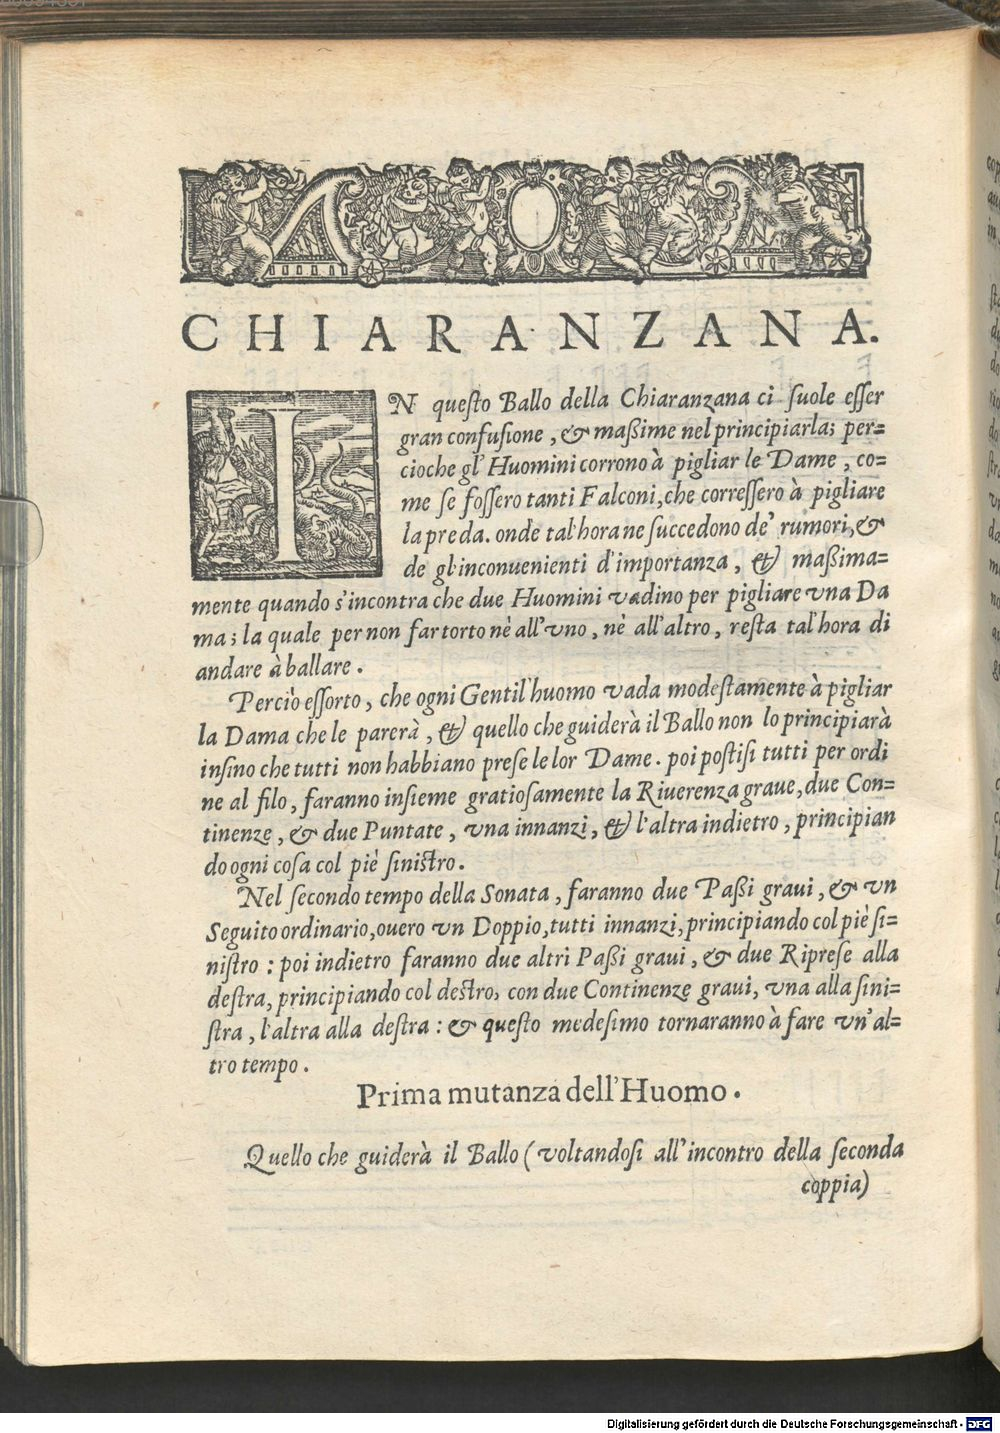 CHIARANZANA.
IN questo Ballo della Chiaranzana ci suole esser
gran confusione, & maßime nel principiarla; per=
cioche gl' Huomini corrono à pigliar le Dame, co=
me se fossero tanti Falconi, che corressero à pigliare
la preda. onde tal'hora ne succedono de' rumori, &
de gl'inconuenienti d'importanza, & maßima=
mente quando s'incontra che due Huomini vadino per pigliare vna Da
ma; la quale per non far torto nè all'vno, nè all'altro, resta tal'hora di
andare à ballare.
Perciò essorto, che ogni Gentil'huomo vada modestamente à pigliar
la Dama che le parerà, & quello che guiderà il Ballo non lo principiarà
insino che tutti non habbiano prese le lor Dame. poi postisi tutti per ordi
ne al filo, faranno insieme gratiosamente la Riuerenza graue, due Con=
tinenze, & due Puntate, vna innanzi, & l'altra indietro, principian
do ogni cosa col piè sinistro.
Nel secondo tempo della Sonata, faranno due Paßi graui, & vn
Seguito ordinario, ouero vn Doppio, tutti innanzi, principiando col piè si=
nistro: poi indietro faranno due altri Paßi graui, & due Riprese alla
destra, principiando col destro, con due Continenze graui, vna alla sini=
stra, l'altra alla destra: & questo medesimo tornaranno à fare vn'al=
tro tempo.
Prima mutanza dell'Huomo.
Quello che guiderà il Ballo (voltandosi all'incontro della seconda
coppia)
Digitalisierung gefördert durch die Deutsche Forschungsgemeinschaft - DFG